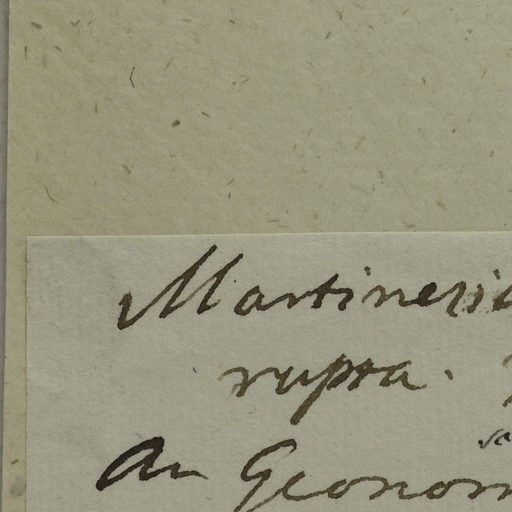 Martinezia
rupta.
sa
An Geonom